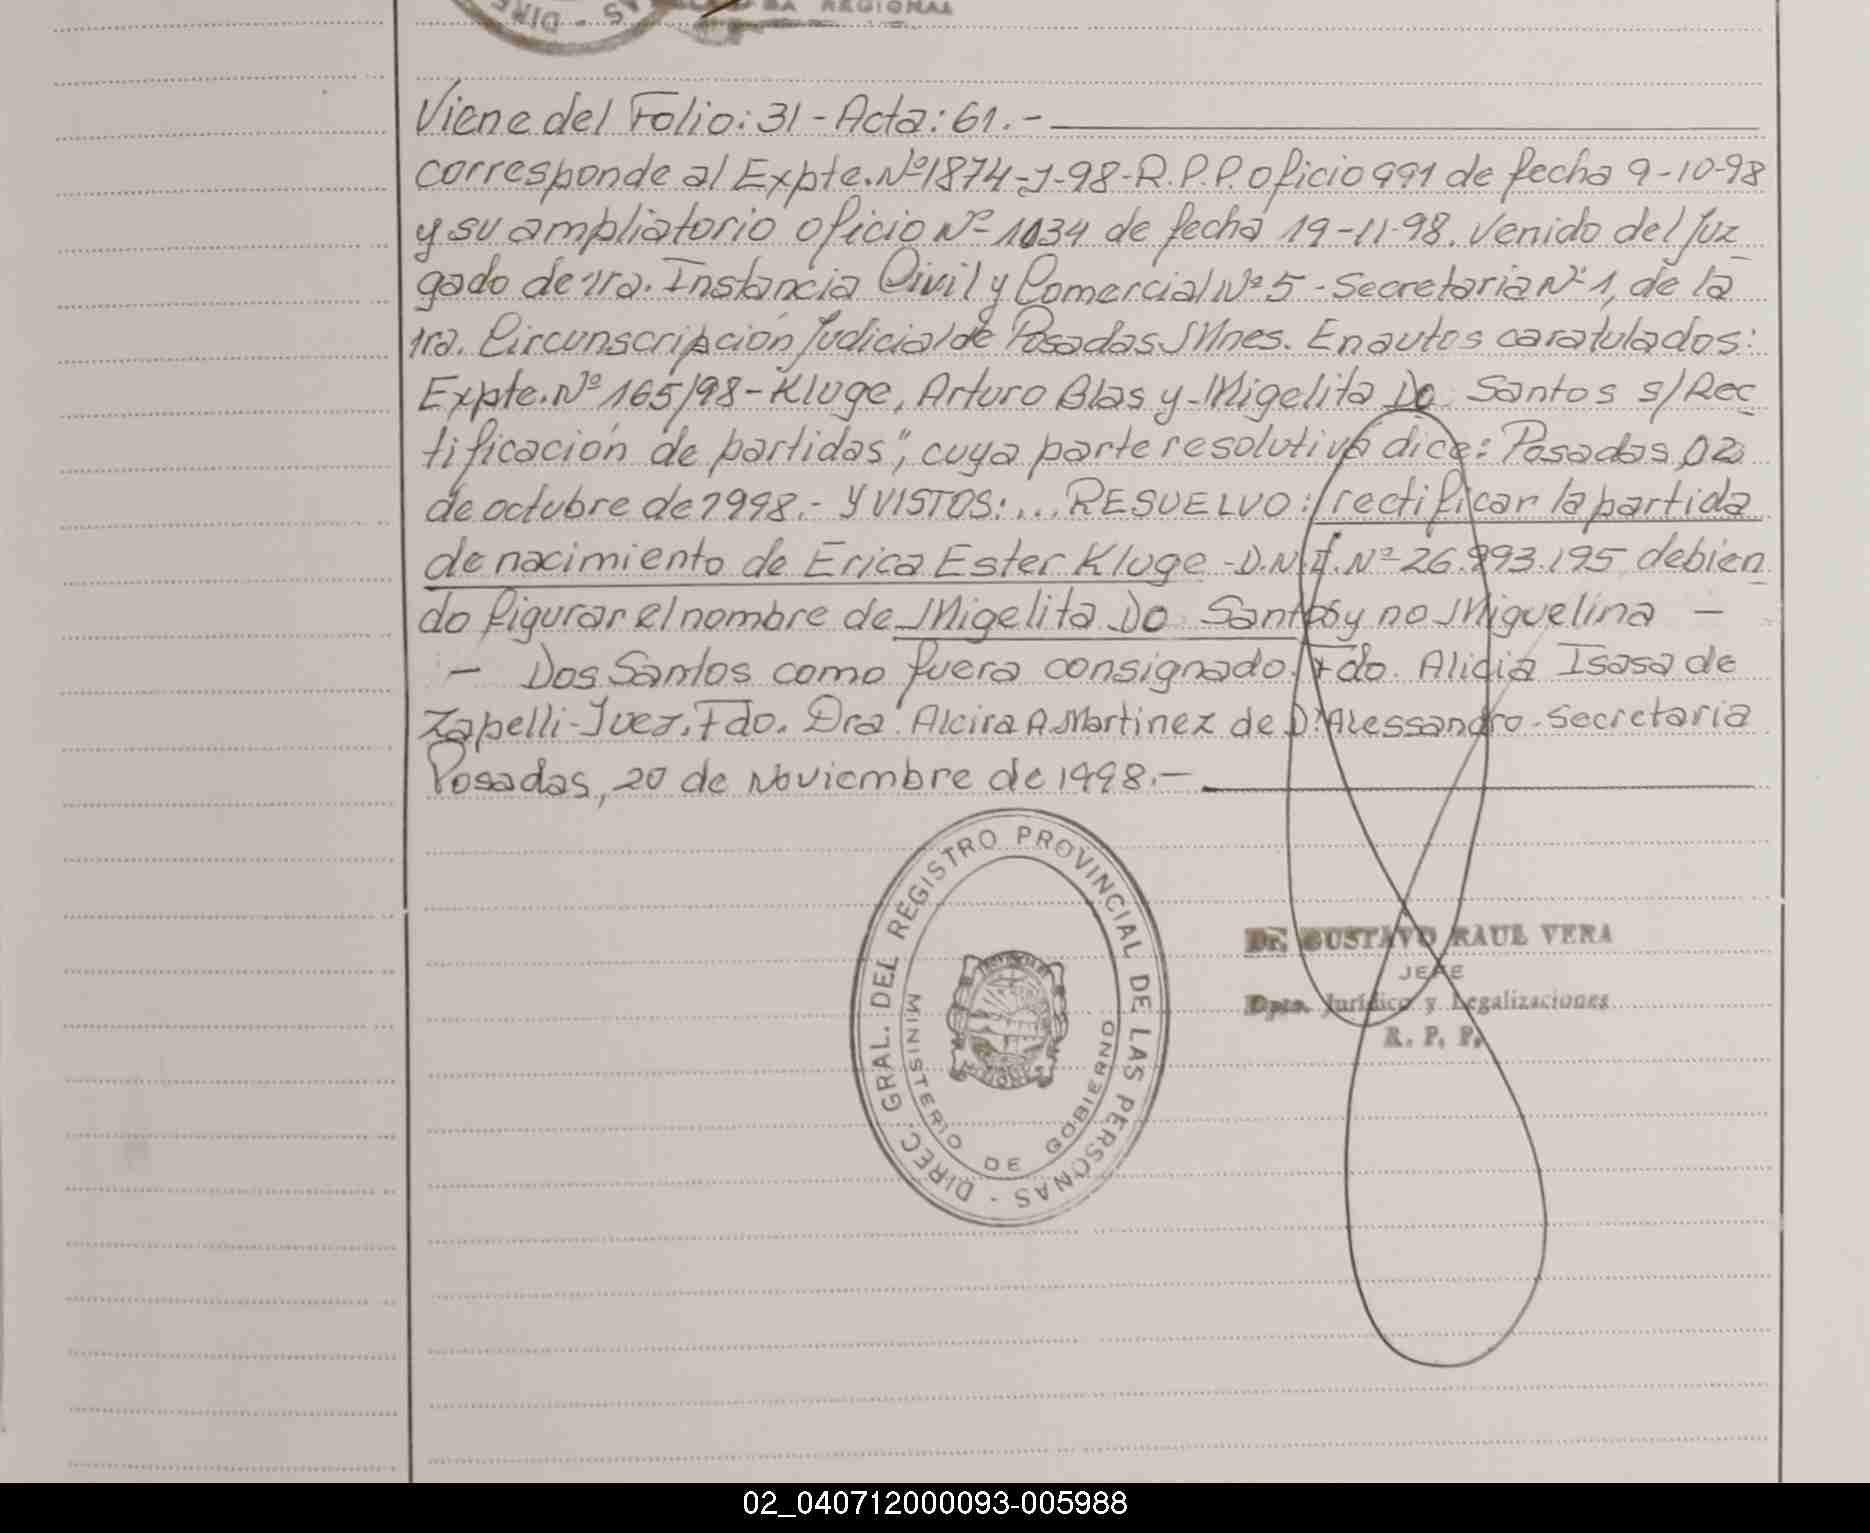 REGIONAL
Viene del Folio: 31 - Acta: 61.-
corresponde al Expte. Nº 1874-J-98-R.P.P. oficio 991 de fecha 9-10-98
y su ampliatorio oficio Nº 1034 de fecha 19-11-98. Venido del Juz
gado de 1ra. Instancia Civil y Comercial Nº 5 - Secretaria Nº 1, de la
1ra. Circunscripción Judicial de Posadas Mnes. En autos caratulados:
Expte. Nº 165/98 - Kluge, Arturo Blas y Migelita Do Santos s/Rec
tificación de partidas", cuya parte resolutiva dice: Posadas, 02
de octubre de 1998.- Y VISTOS:... RESUELVO: rectificar la partida
de nacimiento de Erica Ester Kluge - D.N.I. Nº 26.893.195 debien
do figurar el nombre de Migelita Do Santos y no Miguelina -
- Dos Santos como fuera consignado. Fdo. Alicia Isasa de
Zapelli - Juez. Fdo. Dra. Alcira A. Martinez de D'Alessandro - Secretaria
Posadas, 20 de Noviembre de 1998.-
DIREC. GRAL. DEL REGISTRO PROVINCIAL DE LAS PERSONAS -
MINISTERIO DE GOBIERNO
Dr. GUSTAVO RAUL VERA
JEFE
Dpto. Jurídico y Legalizaciones
R. P. P.
02_040712000093-005988